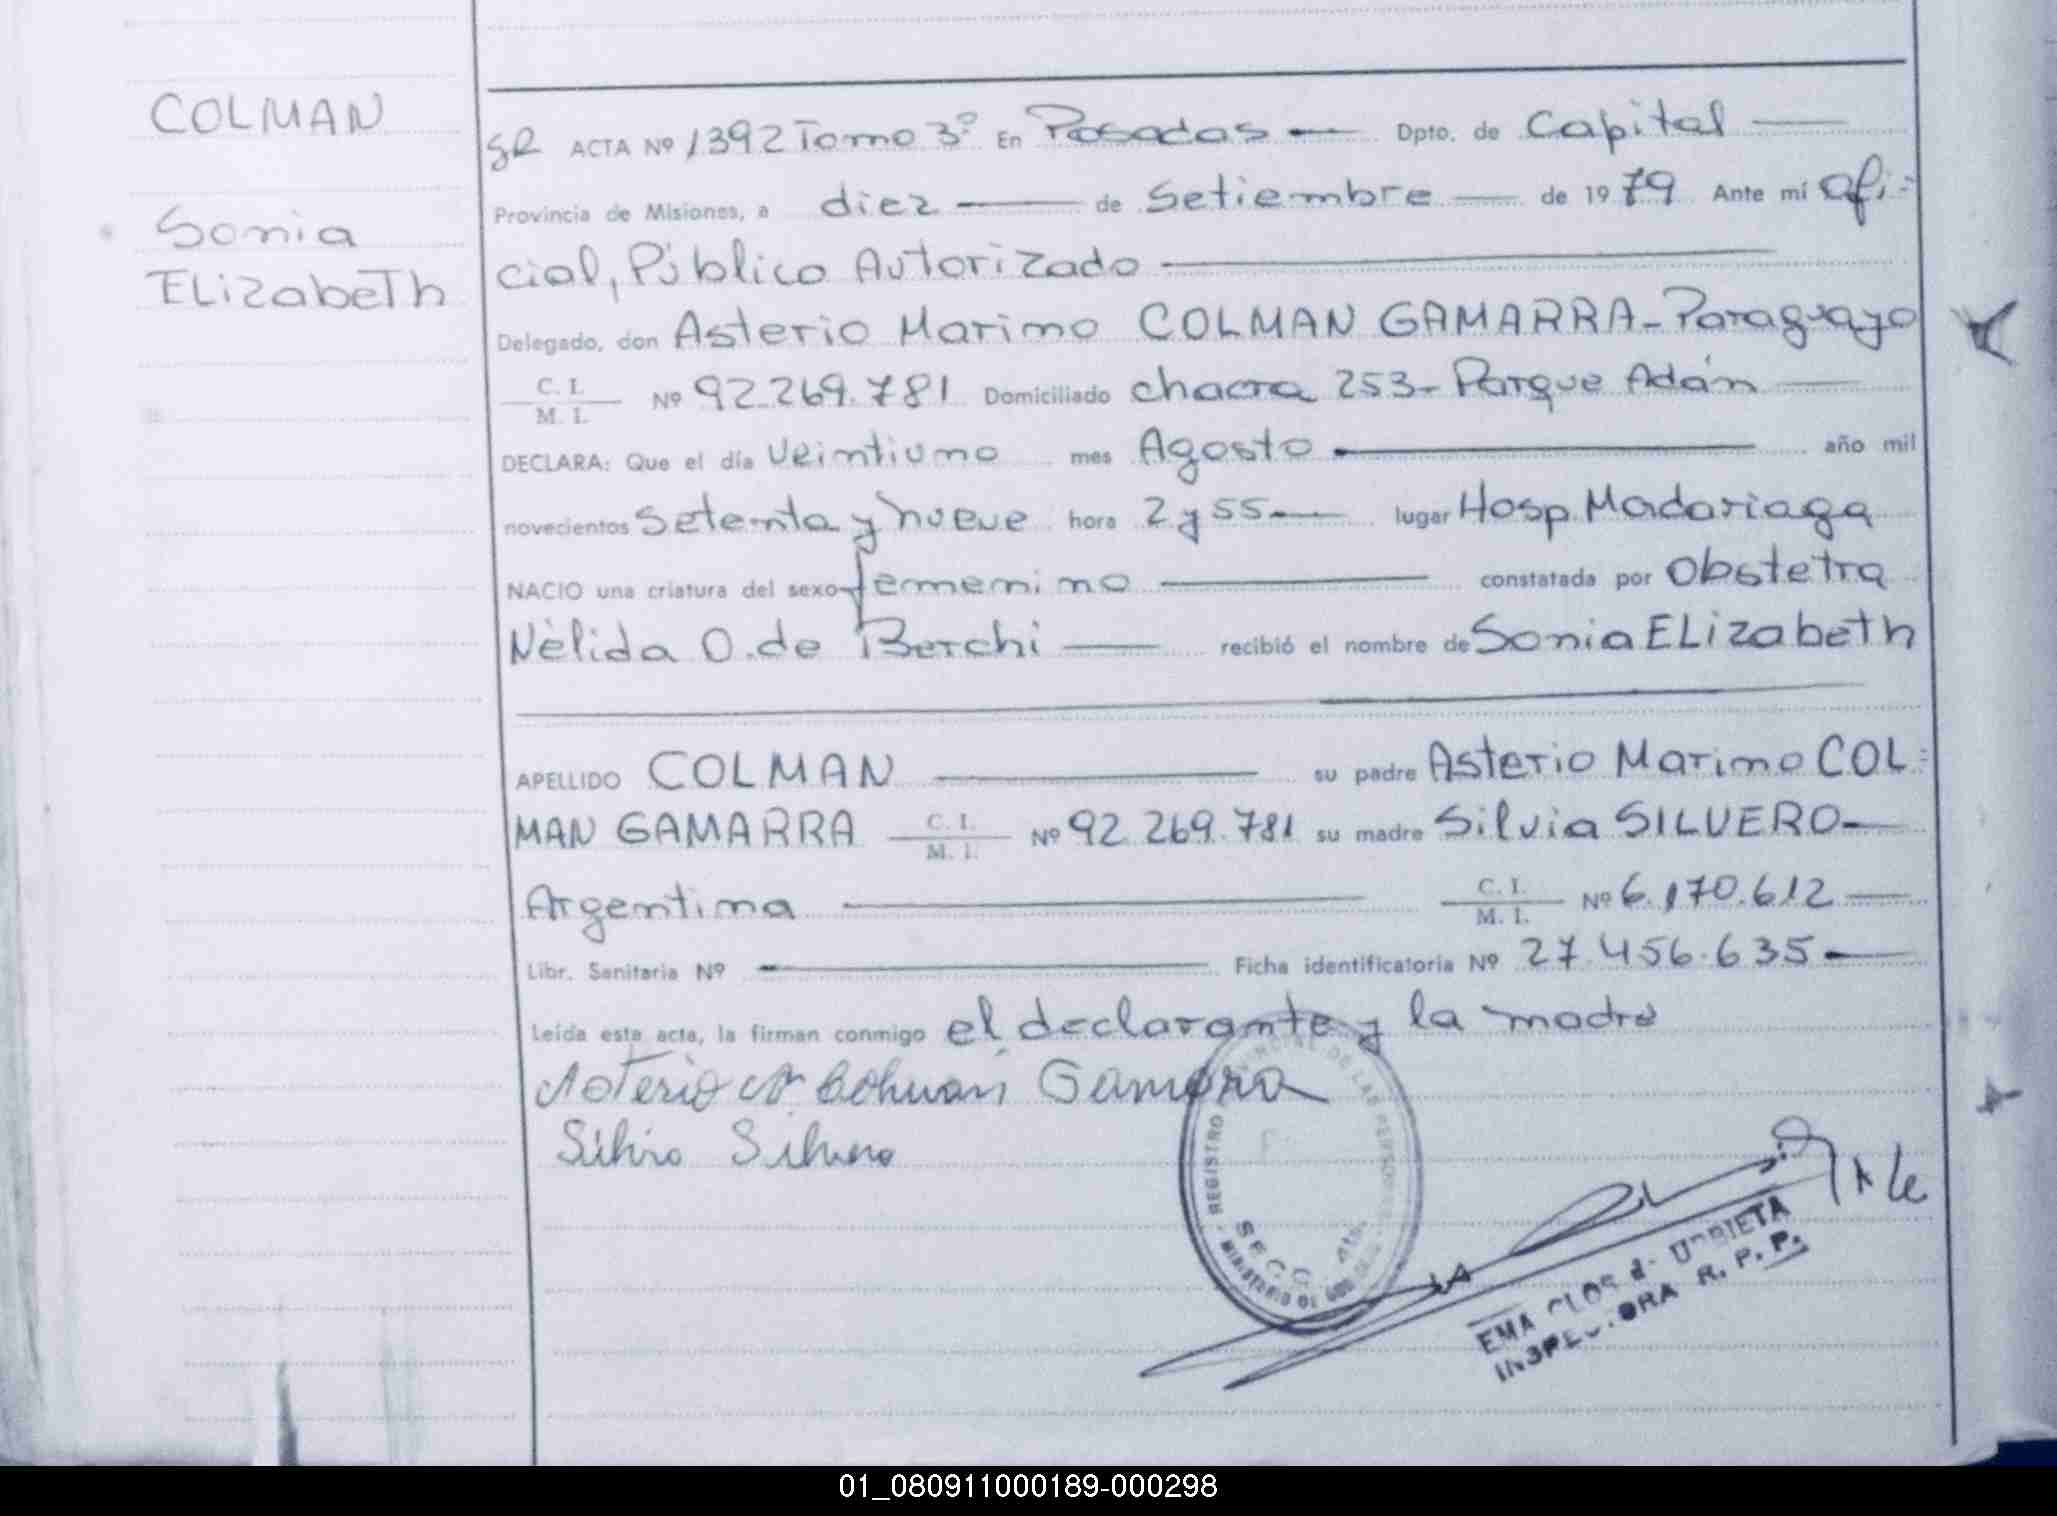 COLMAN
Sonia
ELizabeTh
SR ACTA Nº 1392 Tomo 3º En Posadas — Dpto. de Capital —
Provincia de Misiones, a diez — de Setiembre — de 1979 Ante mí ofi-
cial, Público Autorizado —
Delegado, don Asterio Marino COLMAN GAMARRA - Paraguayo
C. I.
M. I. Nº 92.269.781 Domiciliado chacra 253 - Parque Adán —
DECLARA: Que el día Veintiuno mes Agosto — año mil
novecientos Setenta y nueve hora 2 y 55 — lugar Hosp. Madariaga
NACIO una criatura del sexo femenino — constatada por Obstetra
Nélida O. de Berchi — recibió el nombre de Sonia ELizabeTh
APELLIDO COLMAN — su padre Asterio Marino COL-
MAN GAMARRA C. I. M. I. Nº 92.269.781 su madre Silvia SILVERO —
Argentina — C. I. M. I. Nº 6.170.612 —
Libr. Sanitaria Nº — Ficha identificatoria Nº 27.456.635 —
Leída esta acta, la firman conmigo el declarante y la madre
Asterio M Colman Gamarra
Silvia Silvero
REGISTRO PROVINCIAL DE LAS PERSONAS
SECC. 4ta.
MINISTERIO DE GOB
EMA CLOS de URBIETA
INSPECTORA R. P. P.
01_080911000189-000298